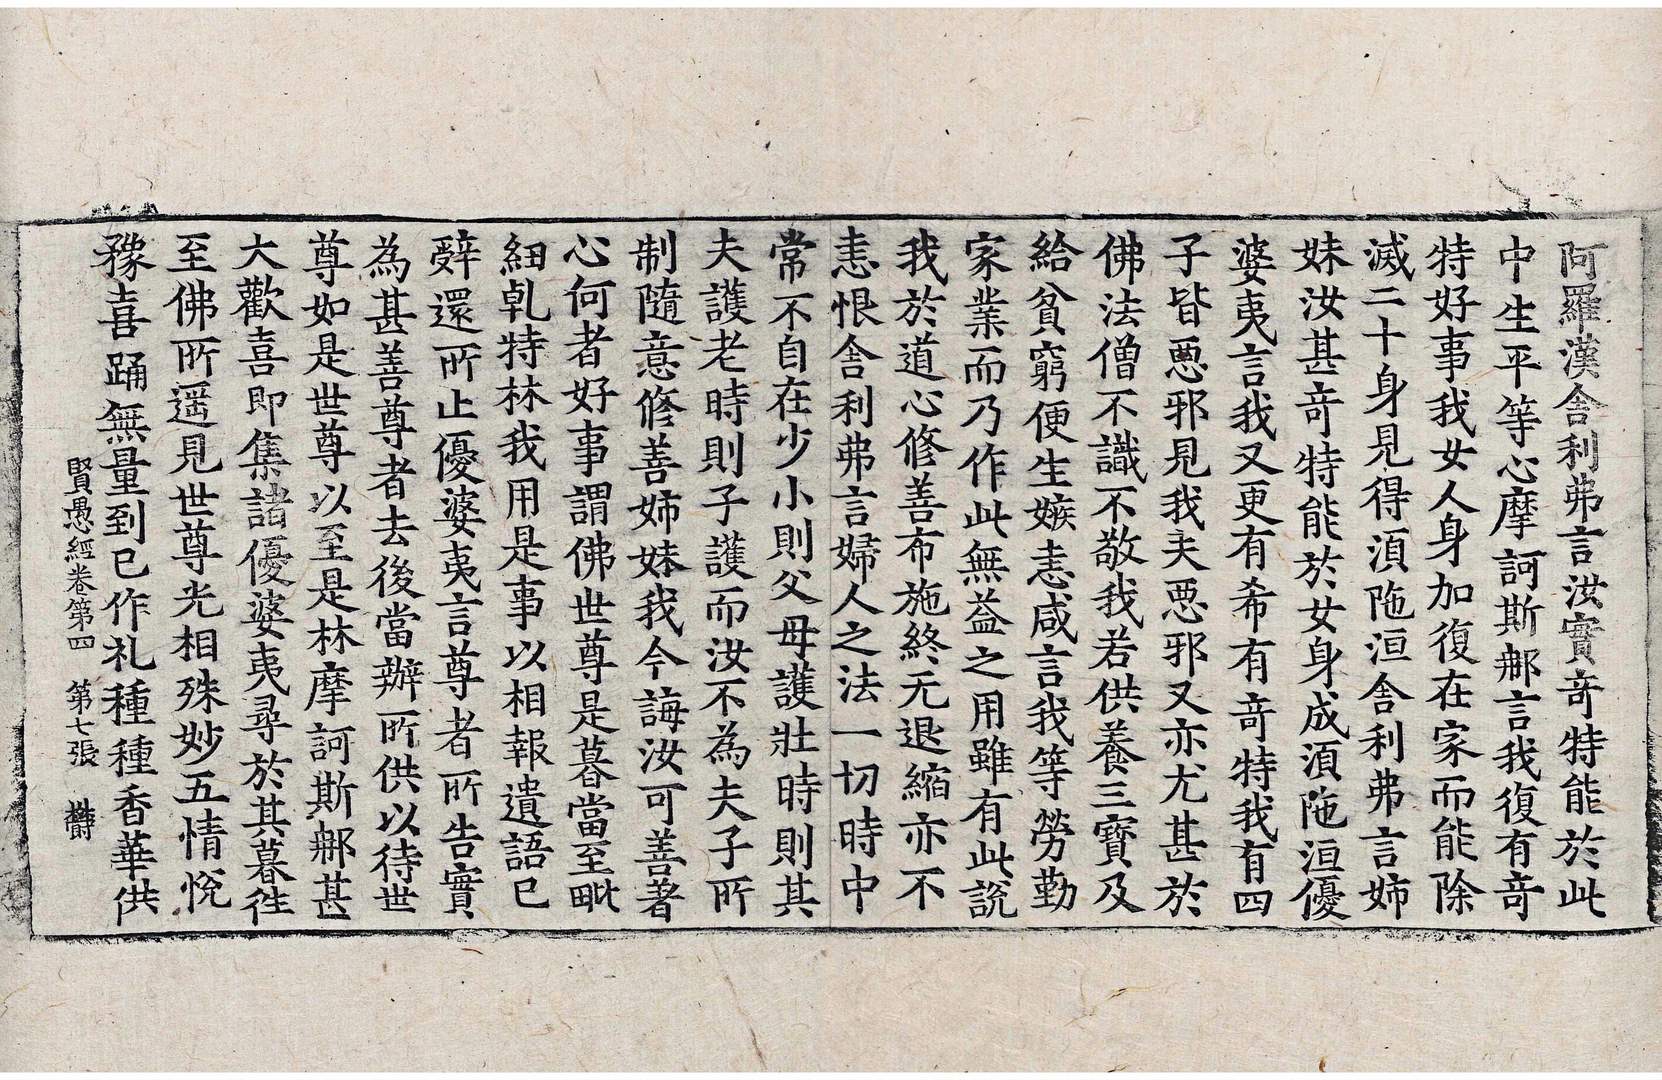 阿羅漢舍利弗言汝實竒特能於此
中生平等心摩訶斯䣀言我復有竒
特好事我女人身加復在家而能除
滅二十身見得湏陁洹舍利弗言姉
妹汝甚竒特能於女身成湏陁洹優
婆夷言我又更有希有竒特我有四
子皆惡邪見我夫惡邪又亦尤甚於
佛法僧不識不敬我若供養三寶及
給貧窮便生嫉恚咸言我等勞勤
家業而乃作此無益之用雖有此說
我於道心修善布施終无退縮亦不
恚恨舍利弗言婦人之法一切時中
常不自在少小則父母護壯時則其
夫護老時則子護而汝不為夫子所
制隨意修善姉妹我今誨汝可善著
心何者好事謂佛世尊是暮當至毗
紐乹特林我用是事以相報遺語已
辤還所止優婆夷言尊者所告實
為甚善尊者去後當辦所供以待世
尊如是世尊以至是林摩訶斯䣀甚
大歡喜即集諸優婆夷尋於其暮徃
至佛所遥見世尊光相殊妙五情悅
豫喜踊無量到已作礼種種香華供
賢愚經卷第四　第七張　欝